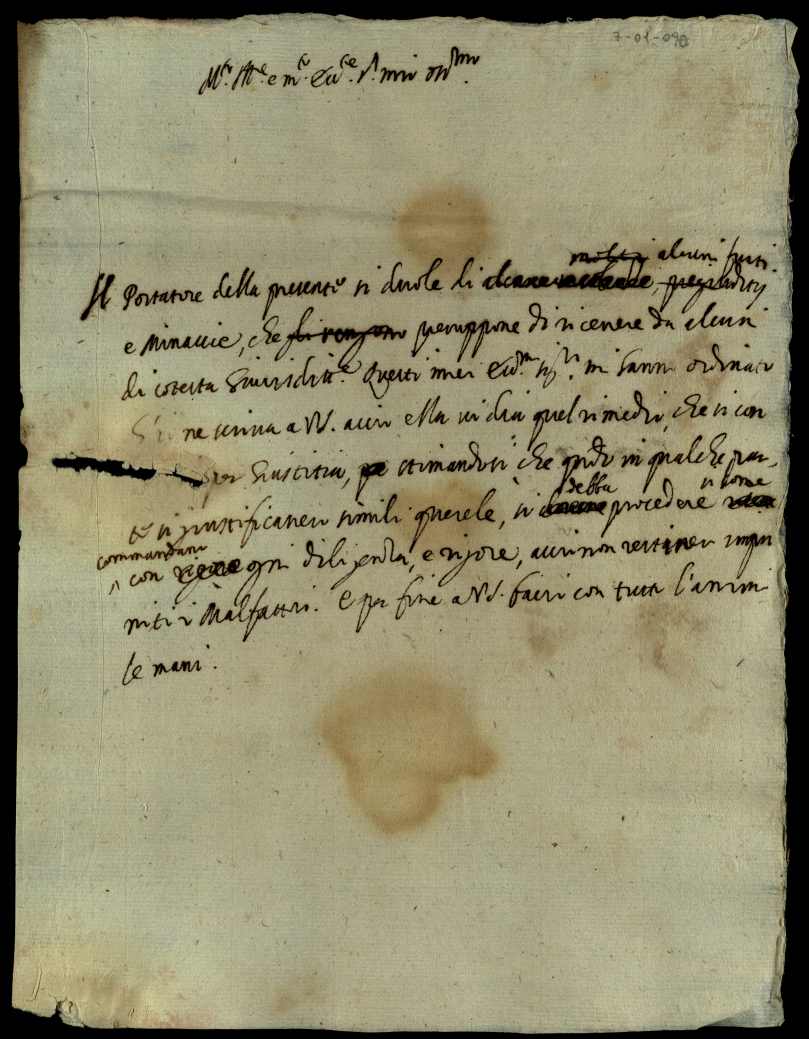 7-01-098
molti alcuni furti
Il Portatore della presente si duole di alcune, pregiuditij
e Minaccie, che gli vengono presuppone di ricevere da alcuni
di cotesta Giurisditt.e Questi miei Ecc.mi Sig.ri mi hanno ordinato
ne scriva a VS. acciò ella vi dia quel rimedio, che si con
per Giustitia, pe stimandosi che qndo in qualche par-
debba si come
te si giustificassero simili querele, si procedere
commandano
con ogni diligenza, e rigore, acciò non restino impu
niti i Malfattori. E per fine a VS. bacio con tutto l'animo
le mani.